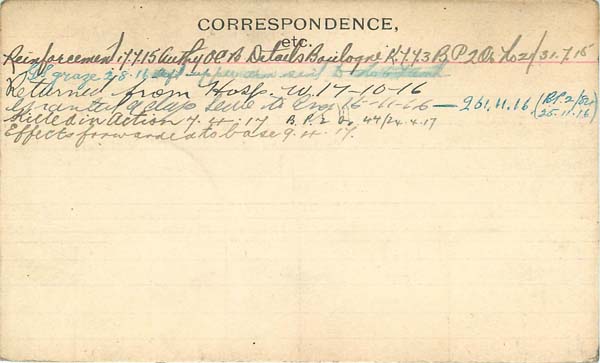 CORRESPONDENCE,
etc.
Reinforcement 17.7.15 Authy OC B Details Boulogne K.773 B P 2 Or No 2/ 31.7.15
graze 2.8.16
Returned from Hosp. W. 17-10-16
Granted 9 days leave to Eng 16-11-16 — 26.11.16 (B.P. 2/
25.11.16)
Killed in Action 7.4.17 B.P. 2 Or 44/24.4.17
Effects forwarded to base 9.4.17.